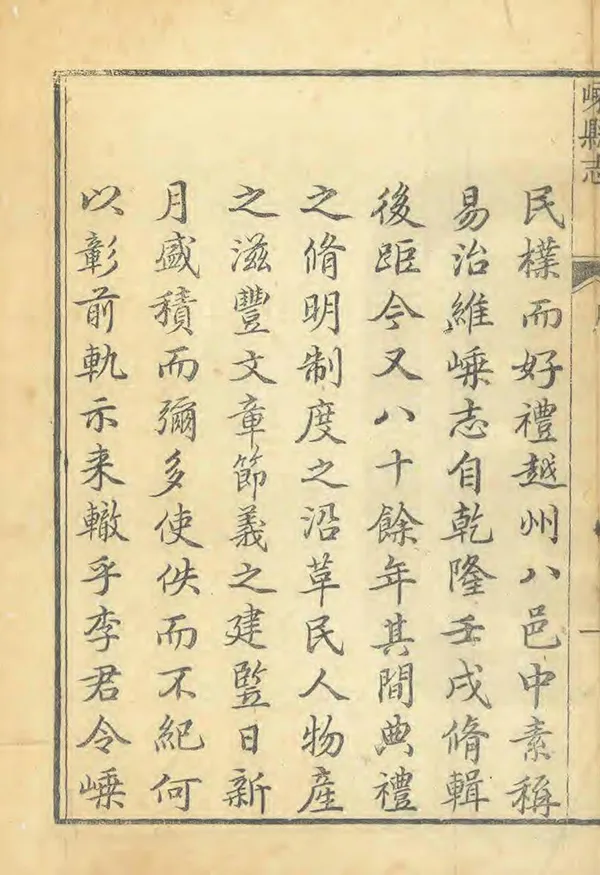 嵊縣志
民樸而好禮越州八邑中素稱
易治維嵊志自乾隆壬戌脩輯
後距今又八十餘年其間典禮
之脩明制度之沿革民人物產
之滋豐文章節義之建竪日新
月盛積而彌多使佚而不紀何
以彰前軌示来轍乎李君令嵊